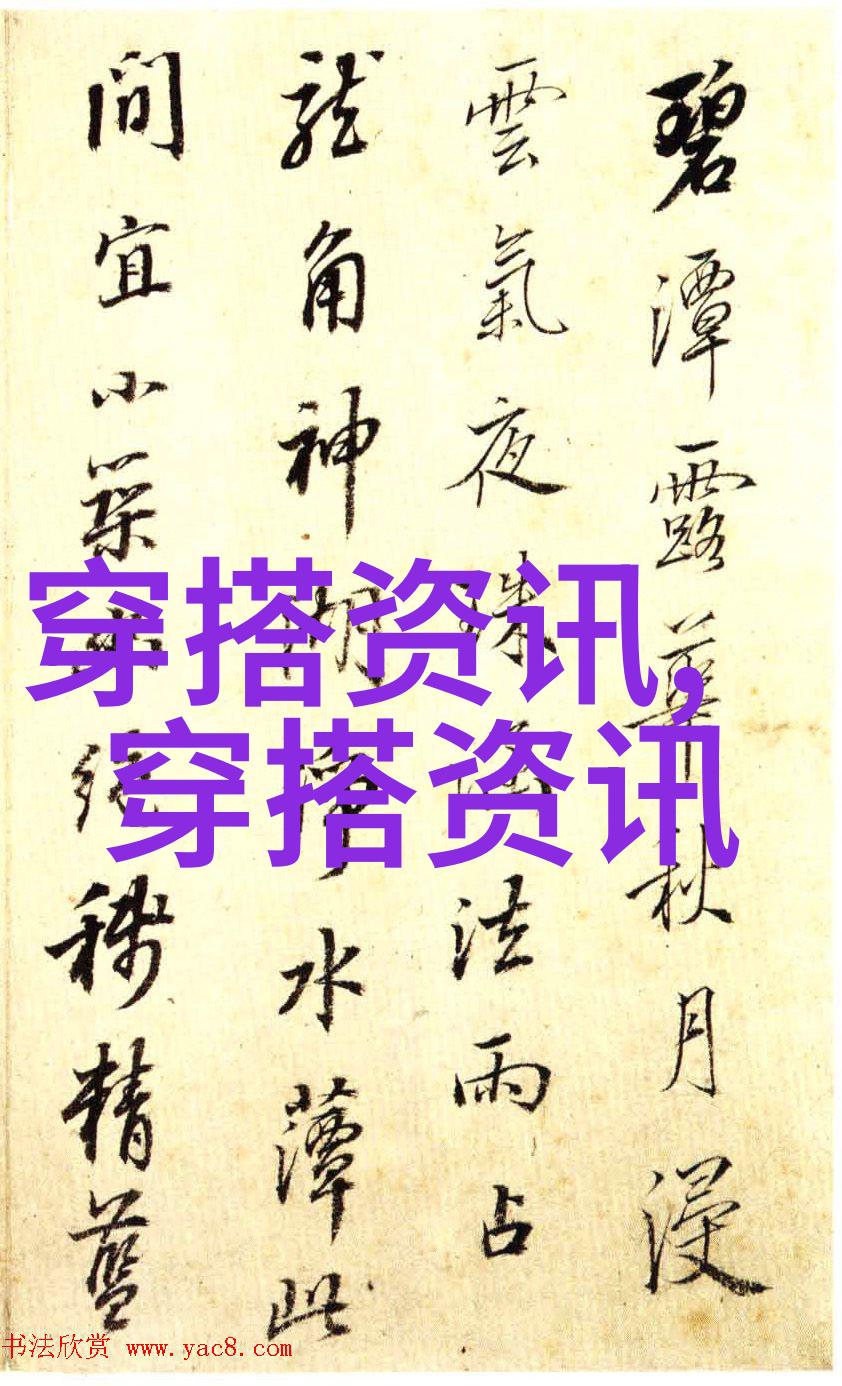 碧潭露華秋月浸
雲氣夜珠涵法雨占
龍角神湖淨水藫此
間宜小築
精藍
穿搭资讯,
穿搭资讯
书法欣赏 www.yac8.com